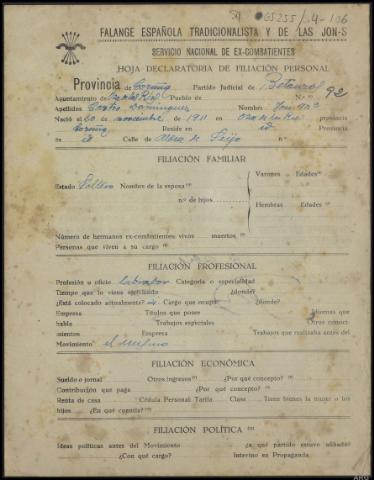 FALANGE ESPAÑOLA TRADICIONALISTA Y DE LAS JON-S
SERVICIO NACIONAL DE EX-COMBATIENTES
HOJA DECLARATORIA DE FILIACIÓN PERSONAL
Provincia de Coruña Partido Judicial de Betanzos
Ayuntamiento de Pueblo de N.º 92
Apellidos Domínguez Nombre José
Nació el 20 de noviembre de 1911 en Provincia
Coruña Reside en id Provincia
id Calle
FILIACIÓN FAMILIAR
Estado Soltero Nombre de la esposa
Varones Edades
n.º de hijos
Hembras Edades
Número de hermanos ex-combatientes: vivos muertos
Personas que viven a su cargo
FILIACIÓN PROFESIONAL
Profesión u oficio labrador Categoría o especialidad
Tiempo que lo viene ejerciendo ¿dónde?
¿Está colocado actualmente? Cargo que ocupa ¿dónde?
Empresa Títulos que posee Idiomas que
habla Trabajos especiales Otros conoci-
mientos Empresa Trabajos que realizaba antes del
Movimiento el mismo
FILIACIÓN ECONÓMICA
Sueldo o jornal Otros ingresos ¿Por qué concepto?
Contribución que paga ¿Por qué concepto?
Renta de casa Cédula Personal Tarifa Clase Tiene bienes la mujer o los
hijos ¿En qué cuantía?
FILIACIÓN POLÍTICA
Ideas políticas antes del Movimiento ¿a qué partido estuvo afiliado?
¿Con qué cargo? Intervino en Propaganda